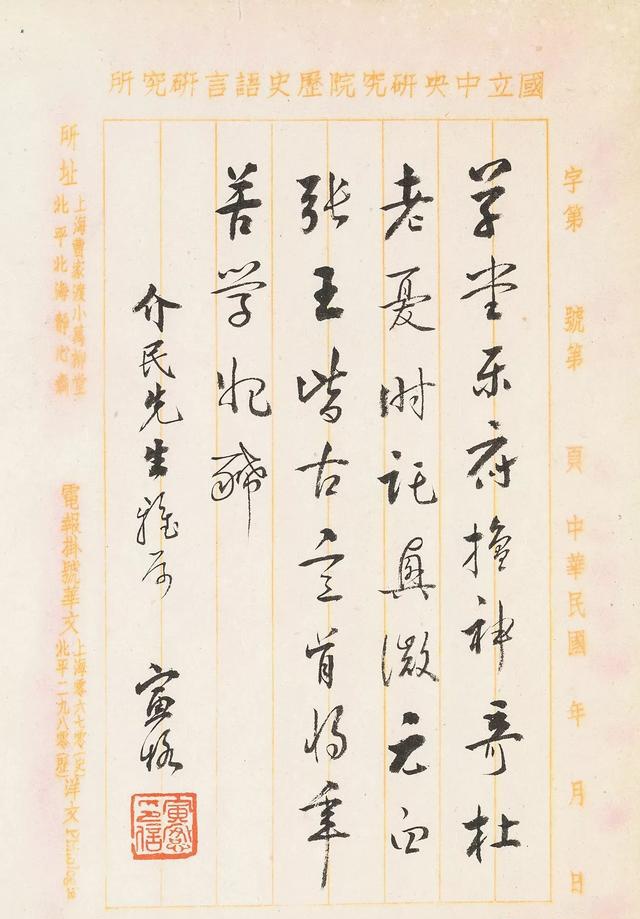 國立中央研究院歷史語言研究所
字第 號第 頁 中華民國 年 月 日
草堂乐府擅神奇杜
老憂时託興微元白
張王皆古意肯将辛
苦学妃豨
介民先生雅属 寅恪
所址
上海曹家渡小萬柳堂
北平北海靜心齋
電報掛號華文
上海零六七零
北平二九八零
洋文